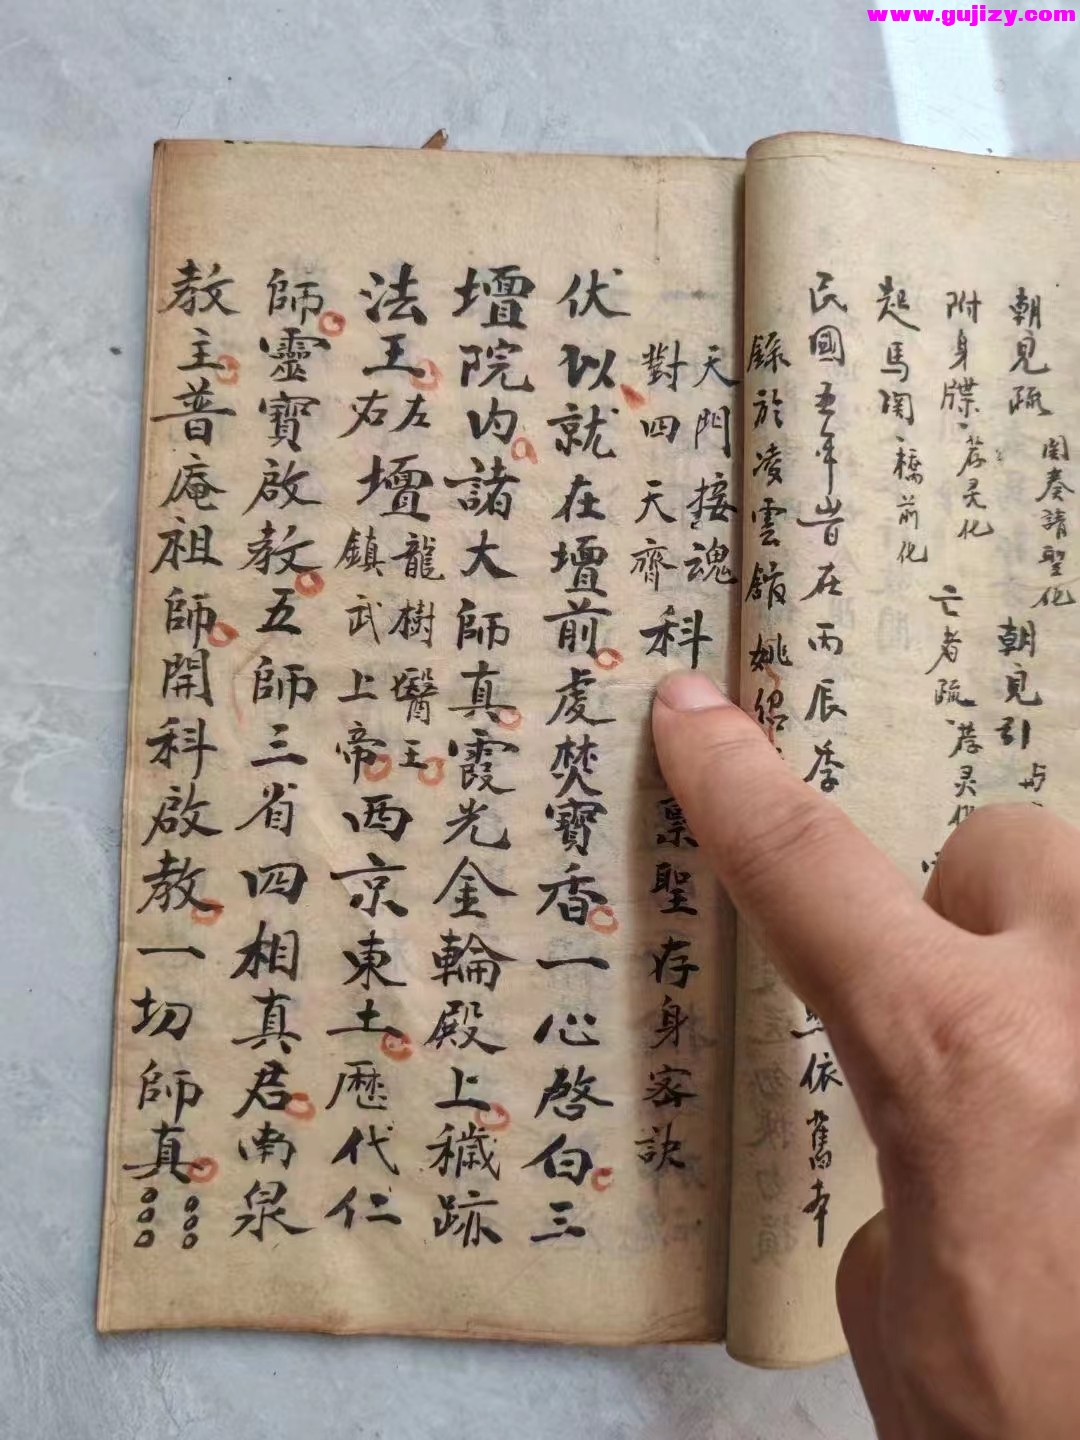 www.gujizy.com
朝見疏 関奏請聖化 朝見引
附身牒 荐灵化 亡者疏 荐灵
起馬関 橋前化
民國五年岁在丙辰季 依舊本
錄於凌雲館姚紹
天門按魂
對四天齊
科 稟聖存身密訣
伏以就在壇前虔焚寶香一心啓白三
壇院内諸大師真霞光金輪殿上穢跡
法王左右壇龍樹醫王鎮武上帝西京東土歷代仁
師靈寶啟教五師三省四相真君南泉
教主普庵祖師開科啟教一切師真